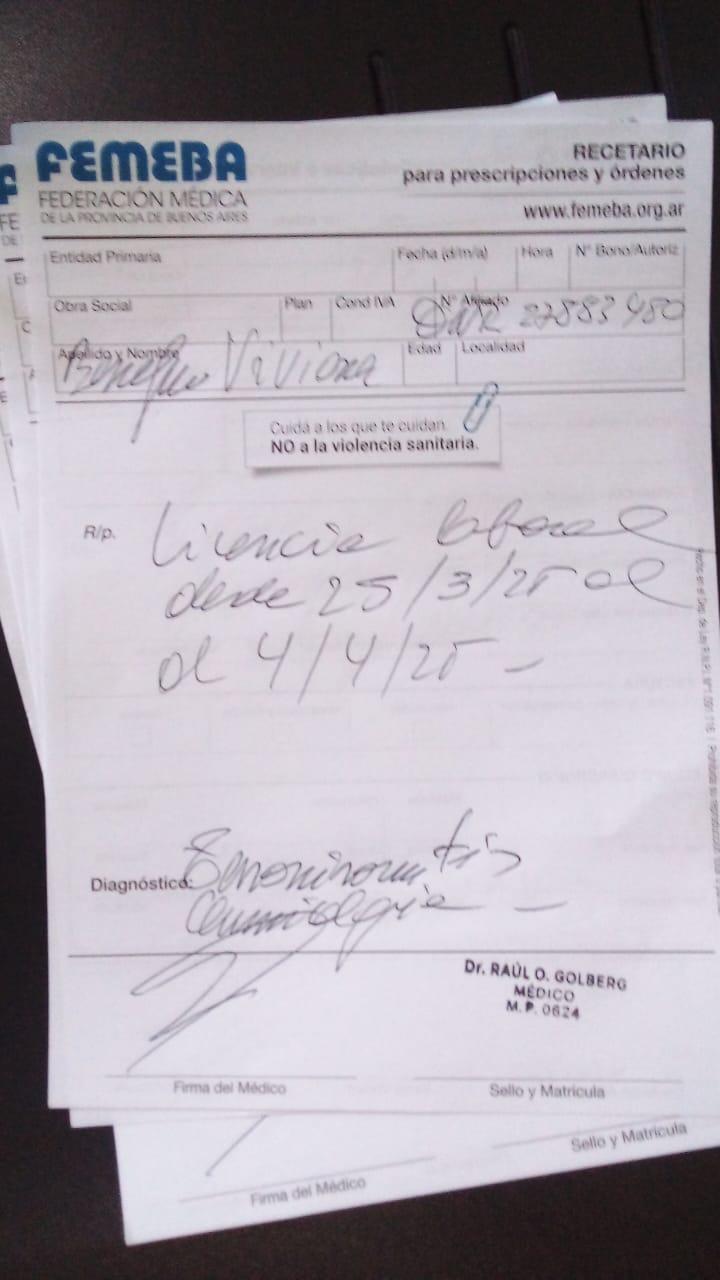 FEMEBA
FEDERACIÓN MÉDICA
DE LA PROVINCIA DE BUENOS AIRES
RECETARIO
para prescripciones y órdenes
www.femeba.org.ar
Entidad Primaria
Fecha (d/m/a)
Hora
N° Bono/Autoriz
Obra Social
Plan
Cond IVA
N° Afiliado
27883480
Apellido y Nombre
Viviana
Edad
Localidad
Cuidá a los que te cuidan.
NO a la violencia sanitaria.
R/p.
Licencia laboral
desde 25/3/25 al
al 4/4/25 -
Diagnóstico:
Dr. RAÚL O. GOLBERG
MÉDICO
M.P. 0624
Firma del Médico
Sello y Matrícula
Firma del Médico
Sello y Matrícula